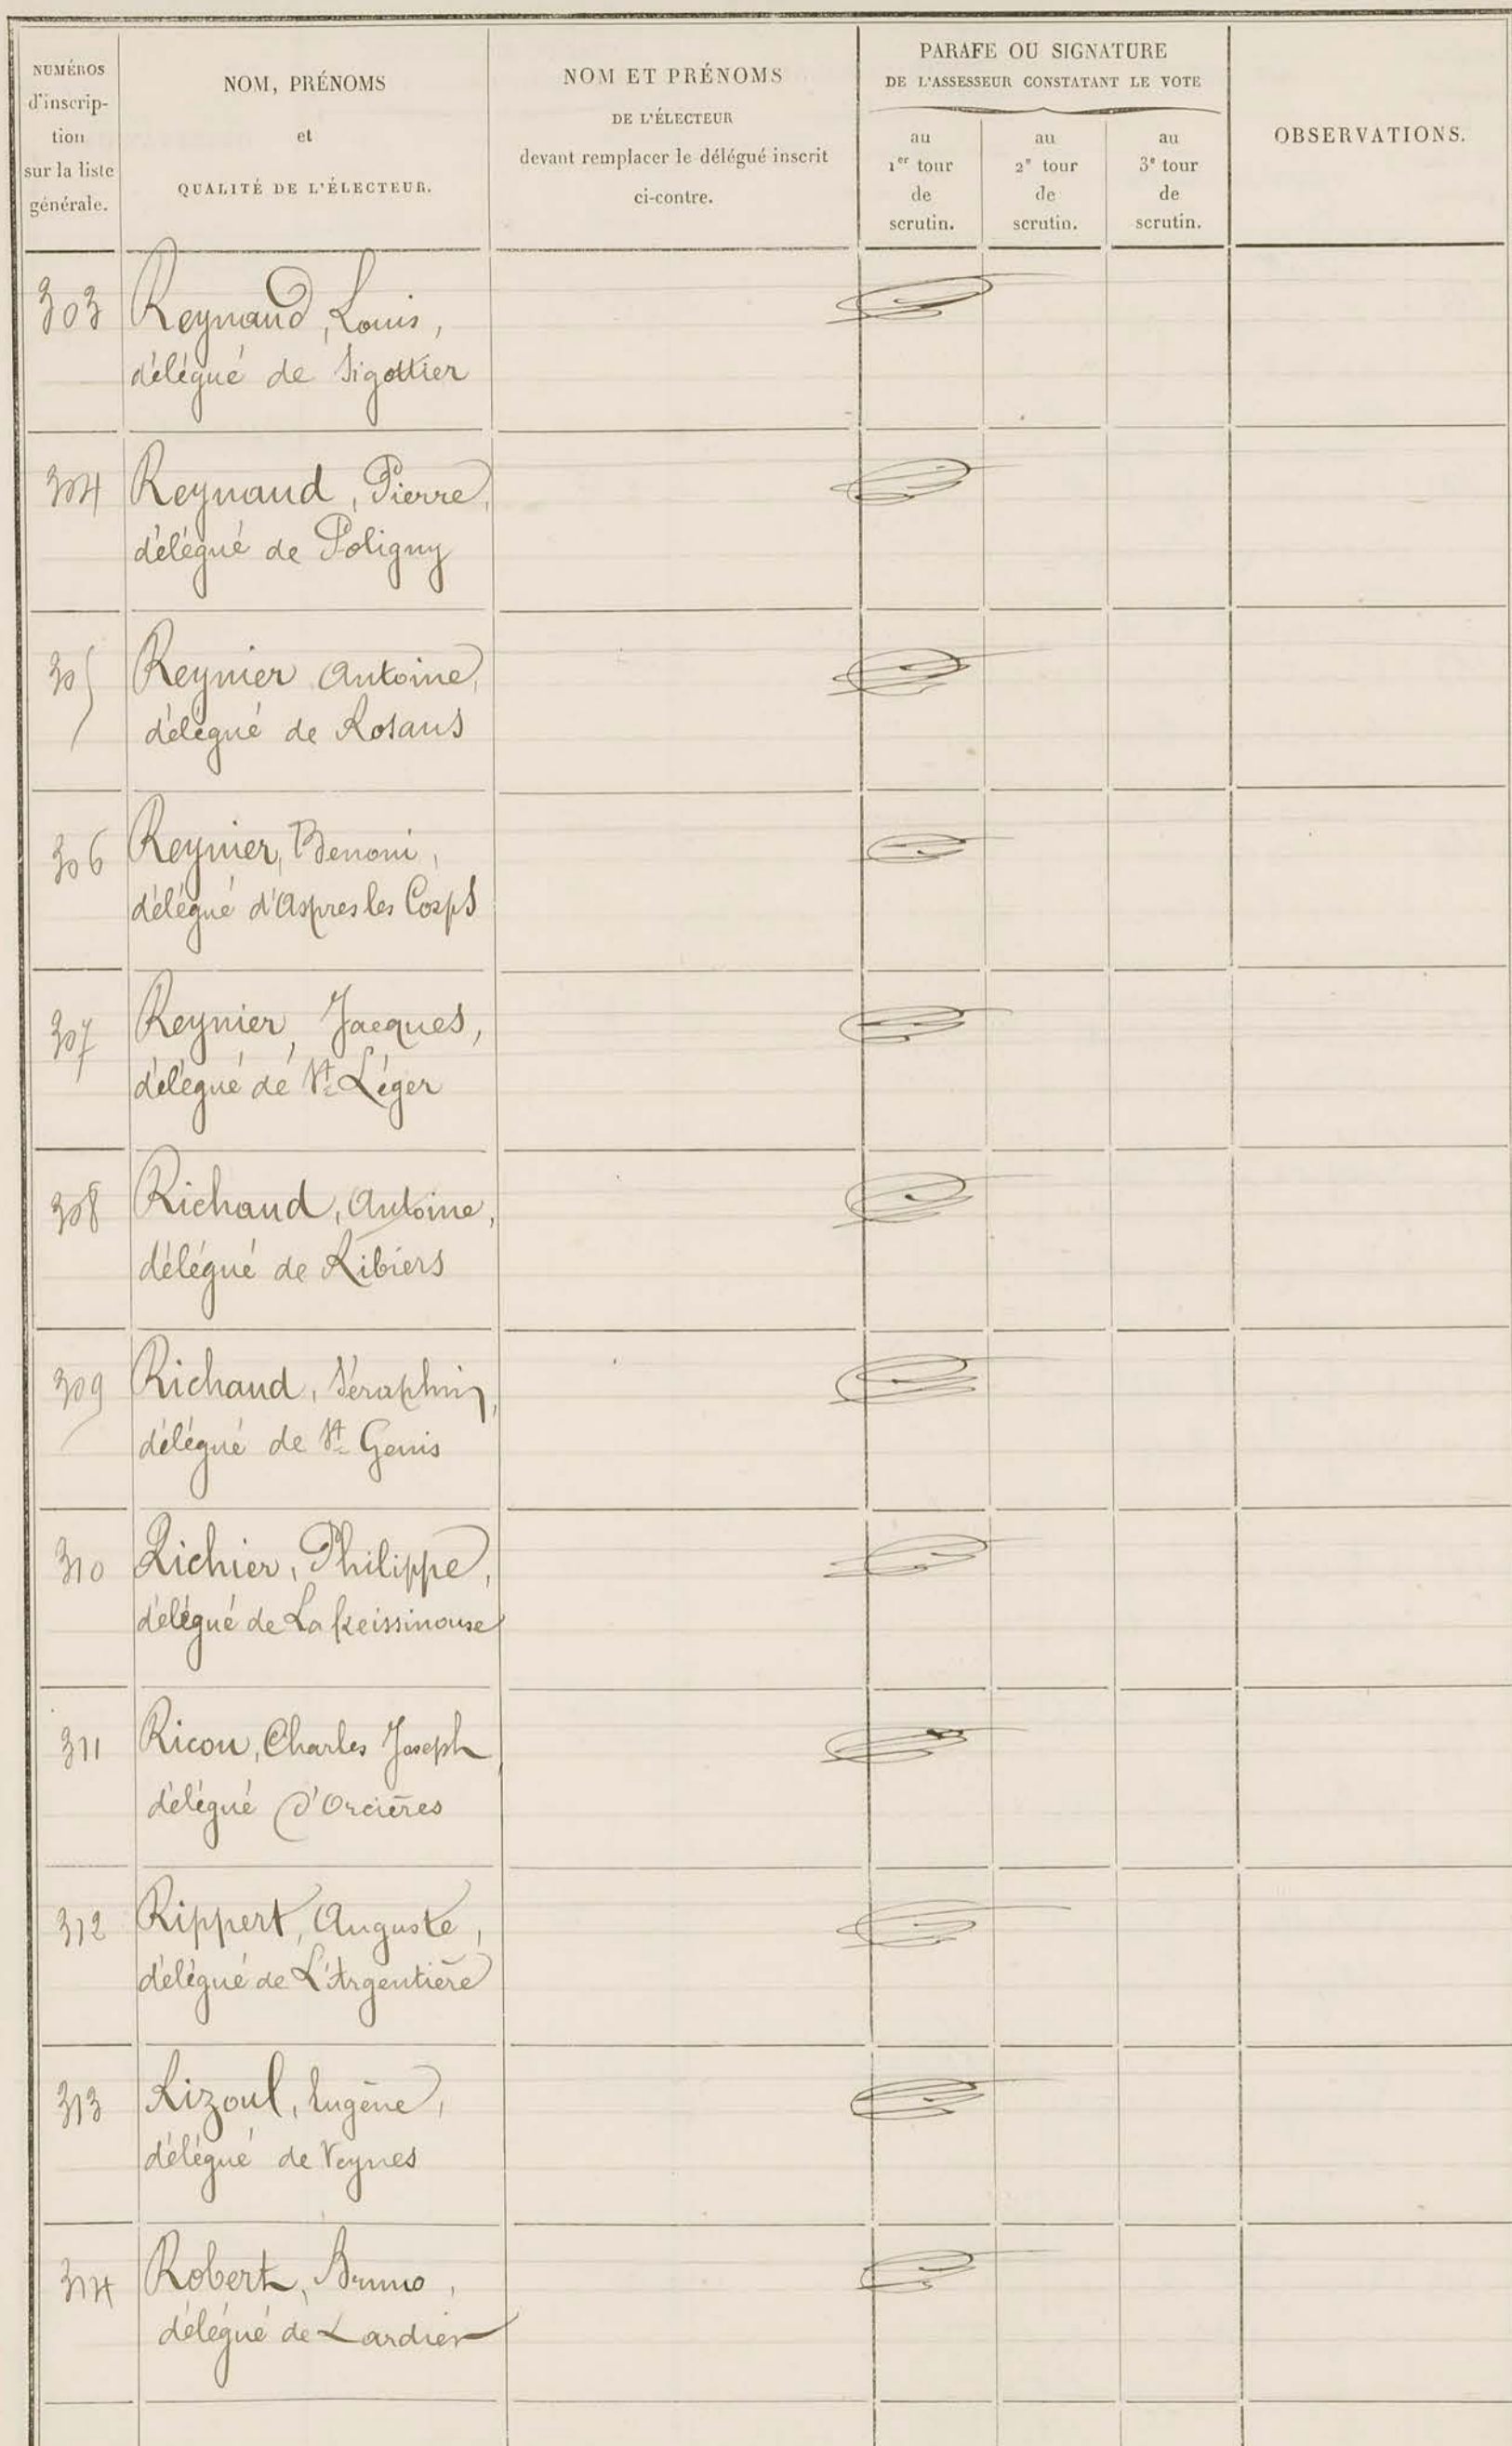 NUMÉROS
d'inscrip-
tion
sur la liste
générale.
NOM, PRÉNOMS
et
QUALITÉ DE L'ÉLECTEUR.
NOM ET PRÉNOMS
DE L'ÉLECTEUR
devant remplacer le délégué inscrit
ci-contre.
PARAFE OU SIGNATURE
DE L'ASSESSEUR CONSTATANT LE VOTE
au
1er tour
de
scrutin.
au
2e tour
de
scrutin.
au
3e tour
de
scrutin.
OBSERVATIONS.
303 Reynaud, Louis,
délégué de Sigottier
304 Reynaud, Pierre,
délégué de Poligny
305 Reynier Antoine,
délégué de Rosans
306 Reynier, Benoni,
délégué d'Aspres les Corps
307 Reynier, Jacques,
délégué de St Léger
308 Richaud, Antoine,
délégué de Ribiers
309 Richaud, Séraphin,
délégué de St Genis
310 Richier, Philippe,
délégué de La freissinouse
311 Ricou, Charles Joseph
délégué d'Orcières
312 Rippert, Auguste,
délégué de L'Argentière
313 Rizoul, Eugène,
délégué de Veynes
314 Robert, Bruno,
délégué de Lardier